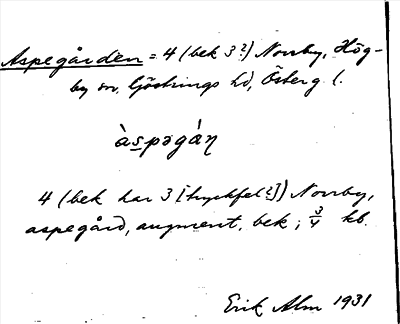 Aspegården = 4 (bek 3?) Norrby, Hög-
by sn, Göstrings hd, Österg l.
àspəgáṇ
4 (bek har 3 [tryckfel?]) Norrby,
aspegård, augment, bek; 3/4 kb.
Erik Alm 1931